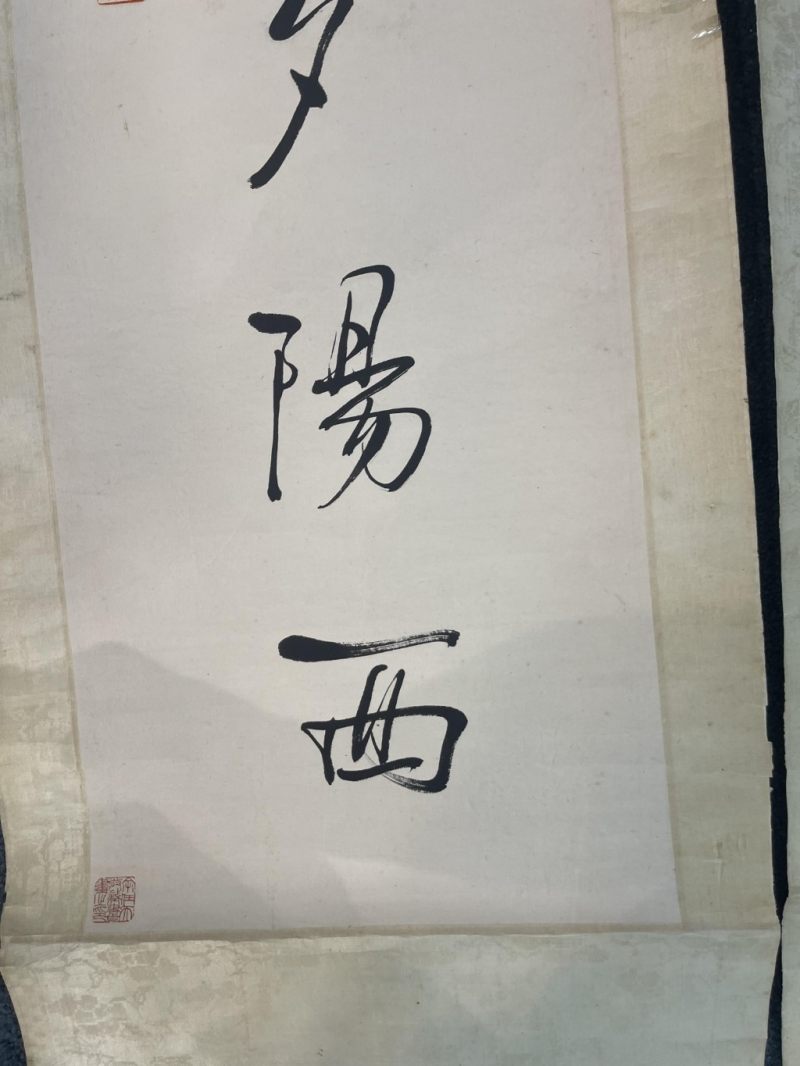 夕
陽
西